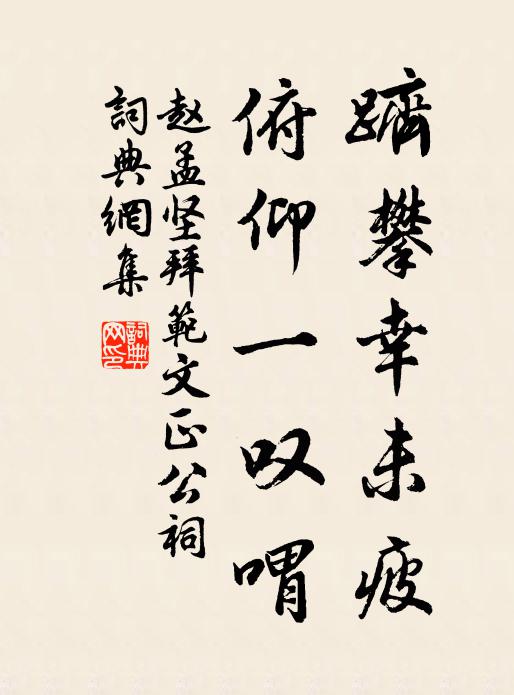 躋攀幸未疲
俯仰一叹喟
赵孟坚拜範文正公祠
詞典網集
詞典網印